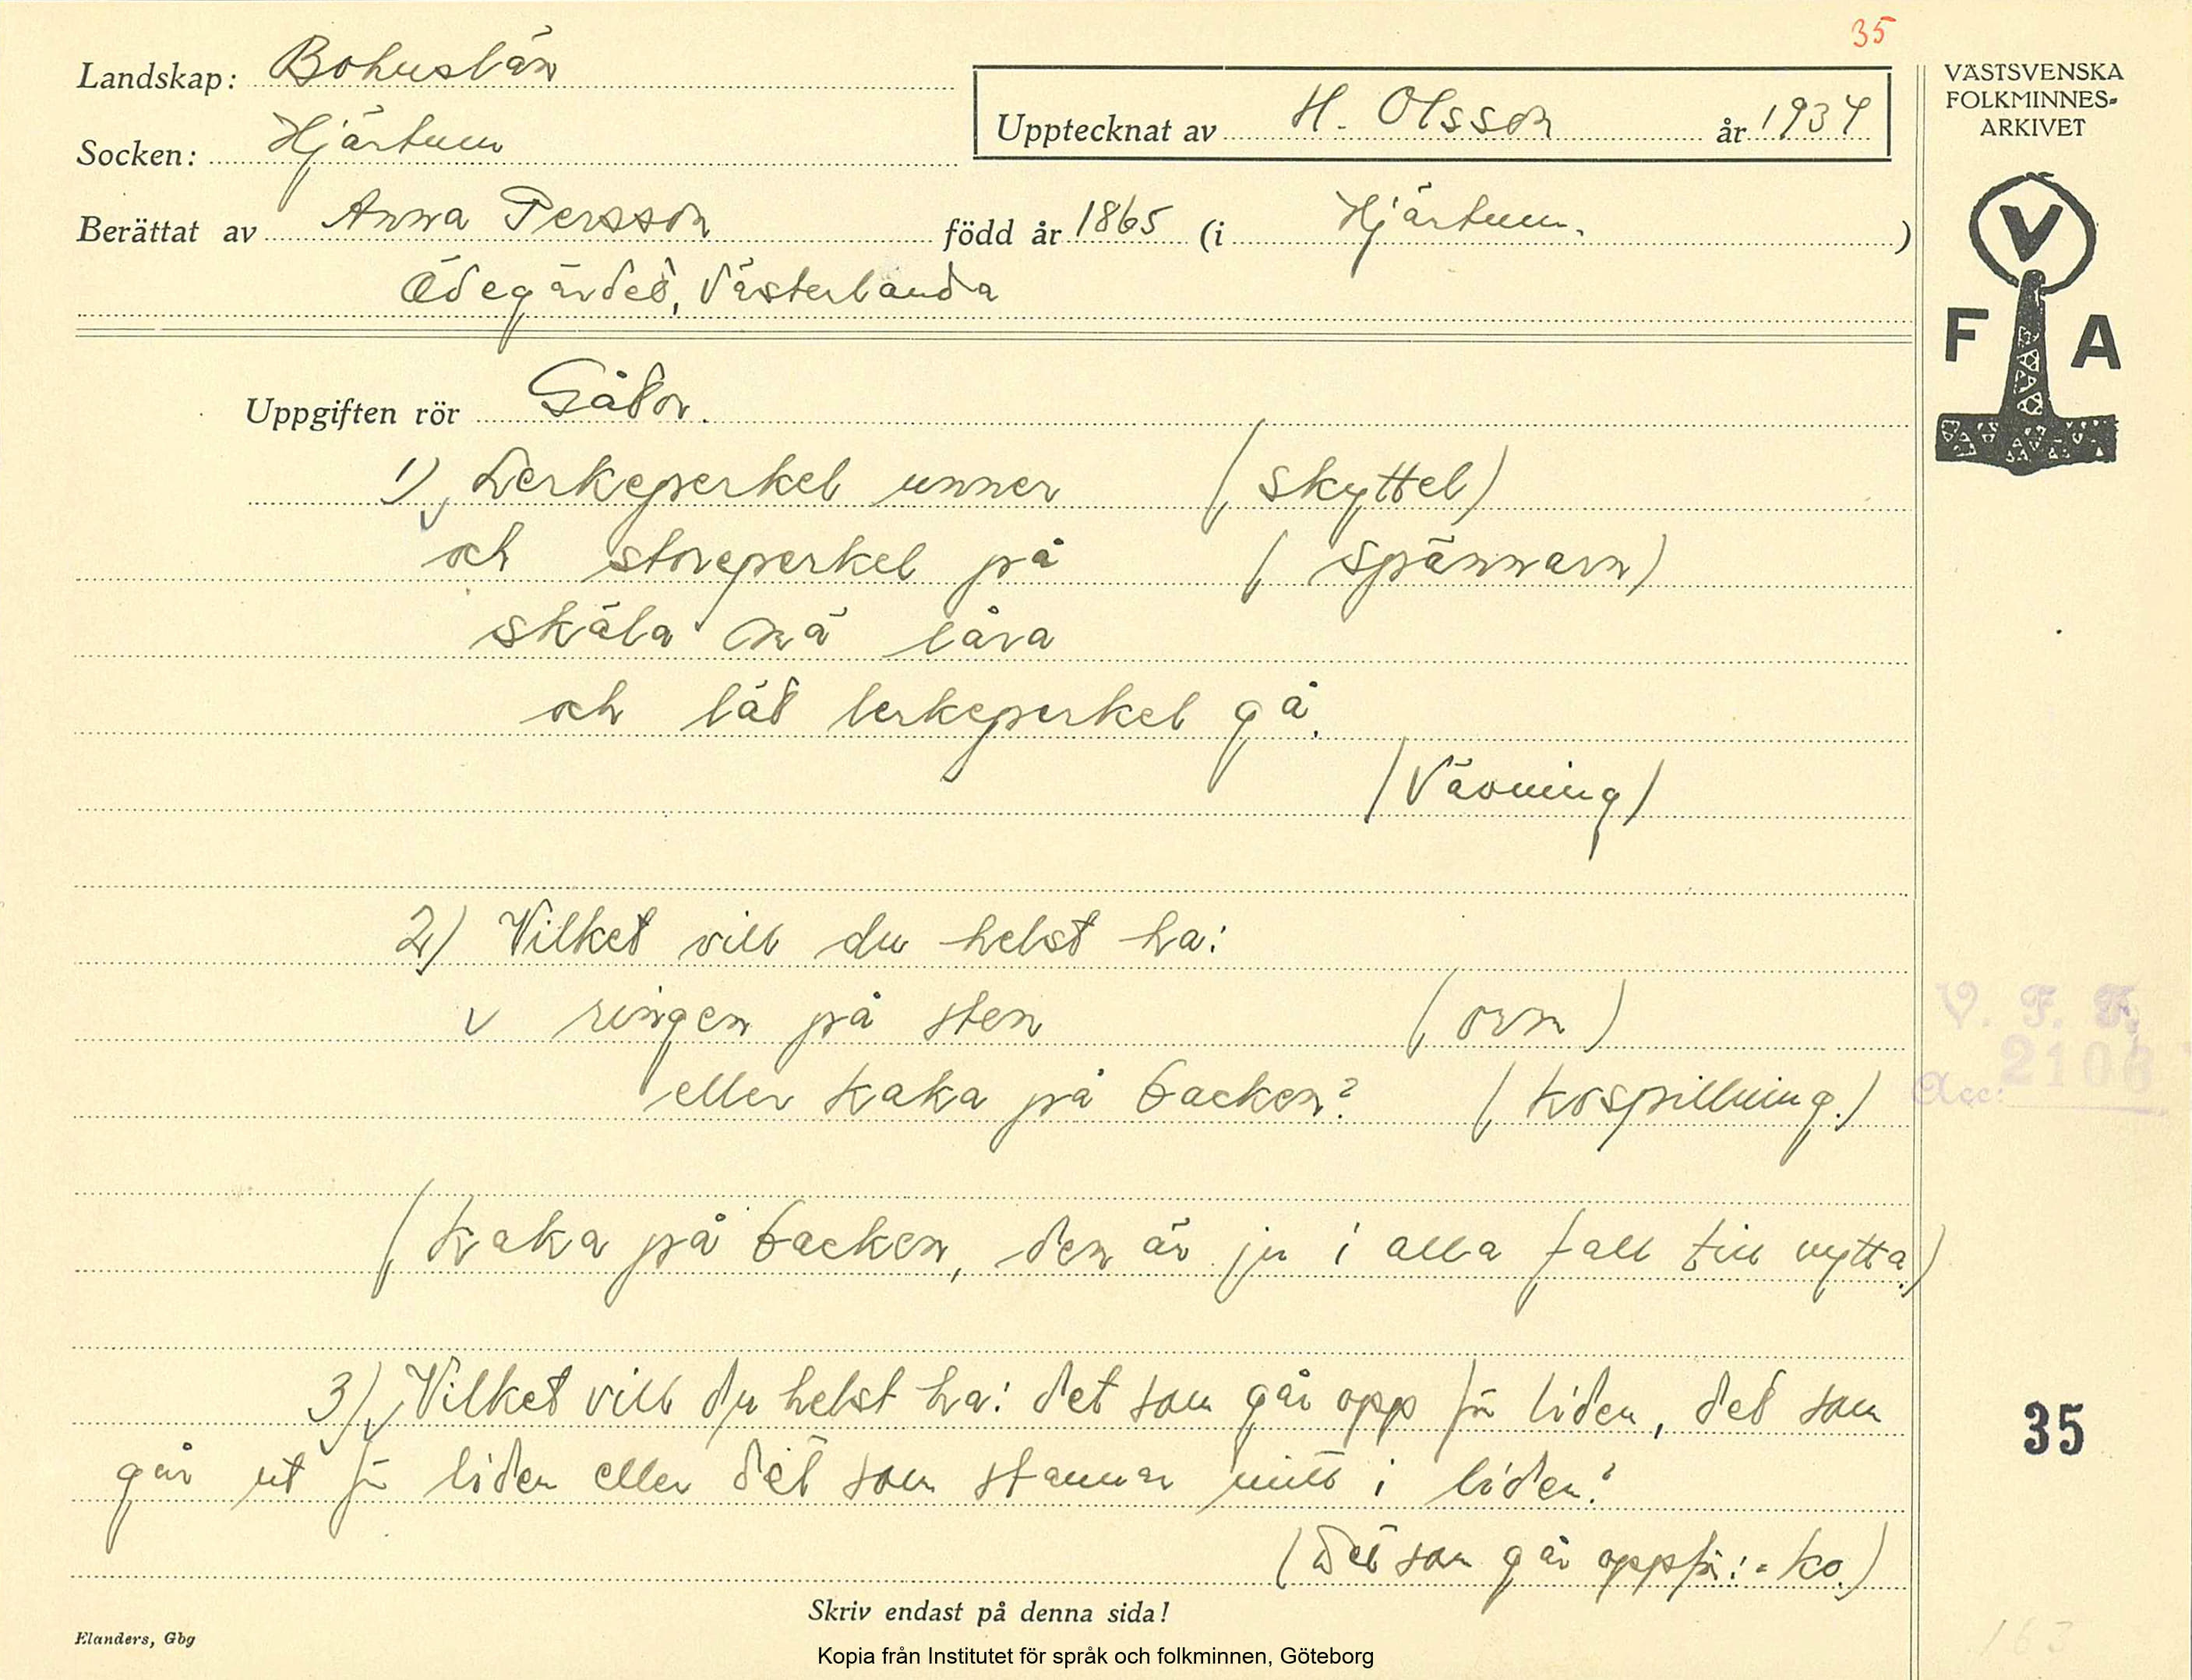 35
Landskap: Bohuslän
Socken: Hjärtum
Upptecknat av H. Olsson år 1934
Berättat av Anna Persson född år 1865 (i Hjärtum.)
Ödegärdet, Västerlanda
VÄSTSVENSKA
FOLKMINNES-
ARKIVET
V
F A
Uppgiften rör Gåtor.
1) Lerkeperkel unner (skyttel)
och storeperkel på (spännarn)
skäla mä låra
och låt lerkeperkel gå.
(Vävning)
2) Vilket vill du helst ha:
v ringen på sten (orm)
eller kaka på backen? (kospillning.)
V. F. F.
Acc: 2108
(Kaka på backen, den är ju i alla fall till nytta.)
3) Vilket vill du helst ha: det som går opp för liden, det som
går ut för liden eller det som stannar mitt i liden?
(Det som går oppför: = ko.)
35
Skriv endast på denna sida!
Elanders, Gbg
163
Kopia från Institutet för språk och folkminnen, Göteborg